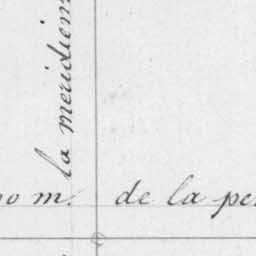 la meridien
00 m. de la per